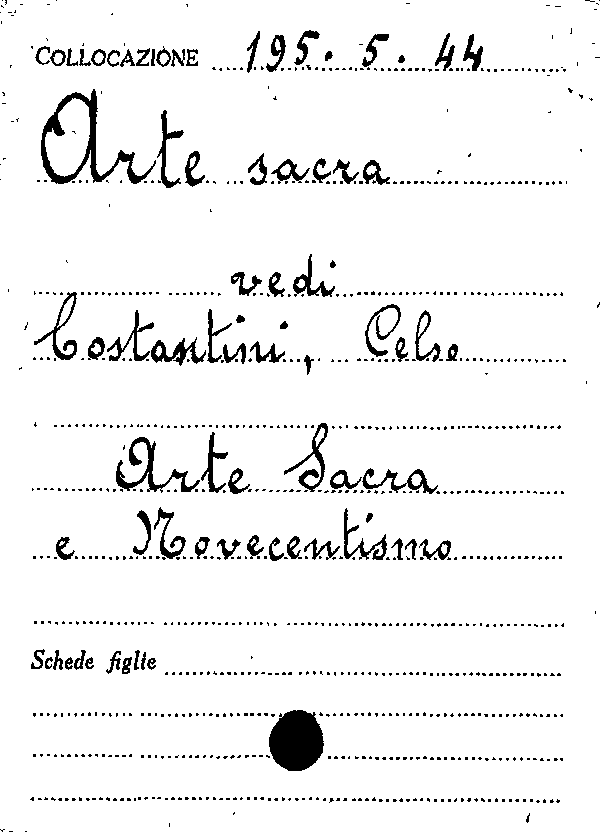 COLLOCAZIONE 195. 5. 44
Arte sacra
vedi
Costantini, Celso
Arte Sacra
e Novecentismo
Schede figlie